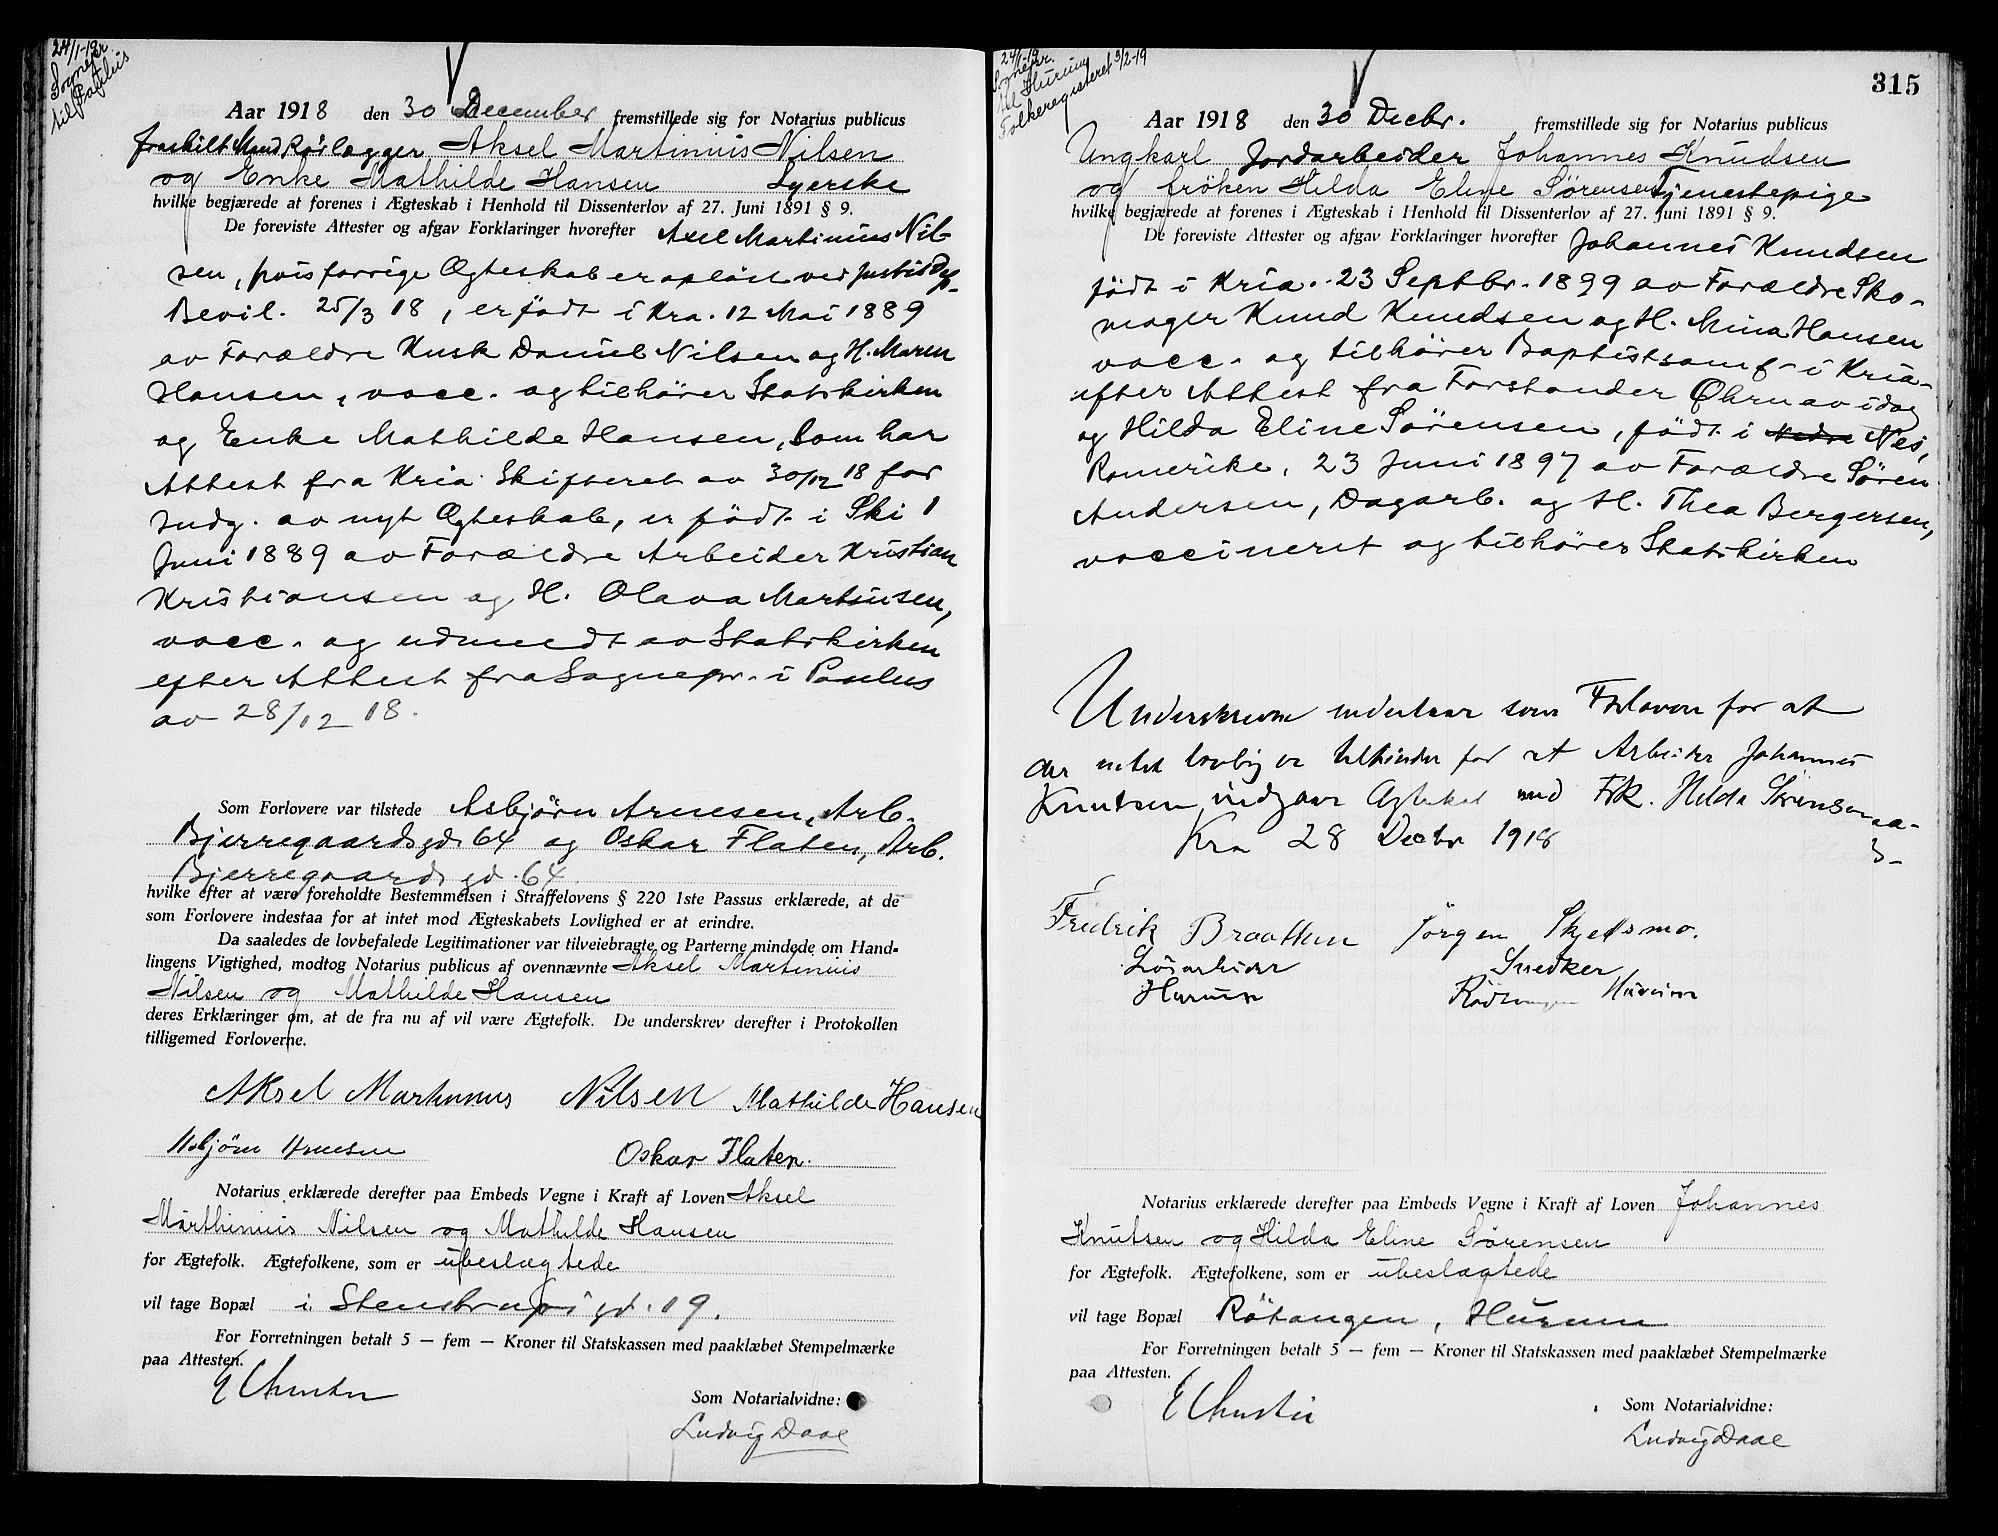 24/1-19
Sognepr.
til Paulus
Aar 1918 den 30 December fremstillede sig for Notarius publicus
fraskilt Mand Rørlægger Aksel Martinius Nilsen
og Enke Mathilde Hansen Syerske
hvilke begjærede at forenes i Ægteskab i Henhold til Dissenterlov af 27. Juni 1891 § 9.
De foreviste Attester og afgav Forklaringer hvorefter Axel Martinius Nil-
sen, hvis forrige Ægteskab er opløst ved Justisdep.
Bevil. 25/3 18, er født i Kra. 12 Mai 1889
av Forældre Kusk Daniel Nilsen og H. Maren
Hansen, vacc. og tilhører Statskirken
og Enke Mathilde Hansen, som har
Attest fra Kria Skifteret av 30/12 18 for
Indg. av nyt Ægteskab, er født i Ski 1
Juni 1889 av Forældre Arbeider Kristian
Kristiansen og H. Olava Martinsen,
vacc. og udmeldt av Statskirken
efter Attest fra Sognepr. i Paulus
av 28/12 18.
Som Forlovere var tilstede Asbjørn Arnesen, Arb.
Bjerregaardsgd. 64 og Oskar Flaten, Arb.
Bjerregaards gd. 64
hvilke efter at være foreholdte Bestemmelsen i Straffelovens § 220 1ste Passus erklærede, at de
som Forlovere indestaa for at intet mod Ægteskabets Lovlighed er at erindre.
Da saaledes de lovbefalede Legitimationer var tilveiebragte og Parterne mindede om Hand-
lingens Vigtighed, modtog Notarius publicus af ovennævnte Aksel Martinius
Nilsen og Mathilde Hansen
deres Erklæringer om, at de fra nu af vil være Ægtefolk. De underskrev derefter i Protokollen
tilligemed Forloverne.
Aksel Martinius Nilsen Mathilde Hansen
Asbjörn Arnesen Oskar Flaten.
Notarius erklærede derefter paa Embeds Vegne i Kraft af Loven Aksel
Marthinius Nilsen og Mathilde Hansen
for Ægtefolk. Ægtefolkene, som er ubeslægtede
vil tage Bopæl i Stenstrups gd. 19.
For Forretningen betalt 5 — fem — Kroner til Statskassen med paaklæbet Stempelmærke
paa Attesten.
E Christie
Som Notarialvidne:
Ludvig Daae
24/1-19
Sognepr.
til Hurum
Folkeregisteret 3/2-19
315
Aar 1918 den 30 Decbr. fremstillede sig for Notarius publicus
Ungkarl Jordarbeider Johannes Knudsen
og frøken Hilda Eline Sørensen Tjenestepige
hvilke begjærede at forenes i Ægteskab i Henhold til Dissenterlov af 27. Juni 1891 § 9.
De foreviste Attester og afgav Forklaringer hvorefter Johannes Knudsen
født i Kria. 23 Septbr. 1899 av Forældre Sko-
mager Knud Knudsen og H. Mina Hansen
vacc. og tilhører Baptistsamf. i Kria.
efter Attest fra Forstander Øhrn av idag
og Hilda Eline Sørensen, født i Nedre Nes,
Romerike, 23 Juni 1897 av Forældre Søren
Andersen, Dagarb. og H. Thea Bergersen,
vaccineret og tilhører Statskirken
Underskrevne indestaar som Forlovere for at
der intet lovlig er tilhinder for at Arbeider Johannes
Knutsen indgaar Ægteskab med Frk. Hilda Sörensen
Kra 28 Decbr 1918
Fredrik Braathen Jörgen Skjelsmo.
Løsarbeider Snedker
Hurum Rödtangen Hurum
Notarius erklærede derefter paa Embeds Vegne i Kraft af Loven Johannes
Knutsen og Hilda Eline Sørensen
for Ægtefolk. Ægtefolkene, som er ubeslægtede
vil tage Bopæl Røtangen, Hurum
For Forretningen betalt 5 — fem — Kroner til Statskassen med paaklæbet Stempelmærke
paa Attesten.
E Christie
Som Notarialvidne:
Ludvig Daae